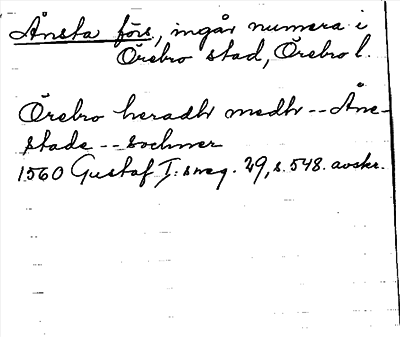 Ånsta förs, ingår numera i
Örebro stad, Örebro l.
Örebro heradhr medhr -- Åne-
stade -- sochner
1560 Gustaf I: s reg. 29, s. 548. avskr.